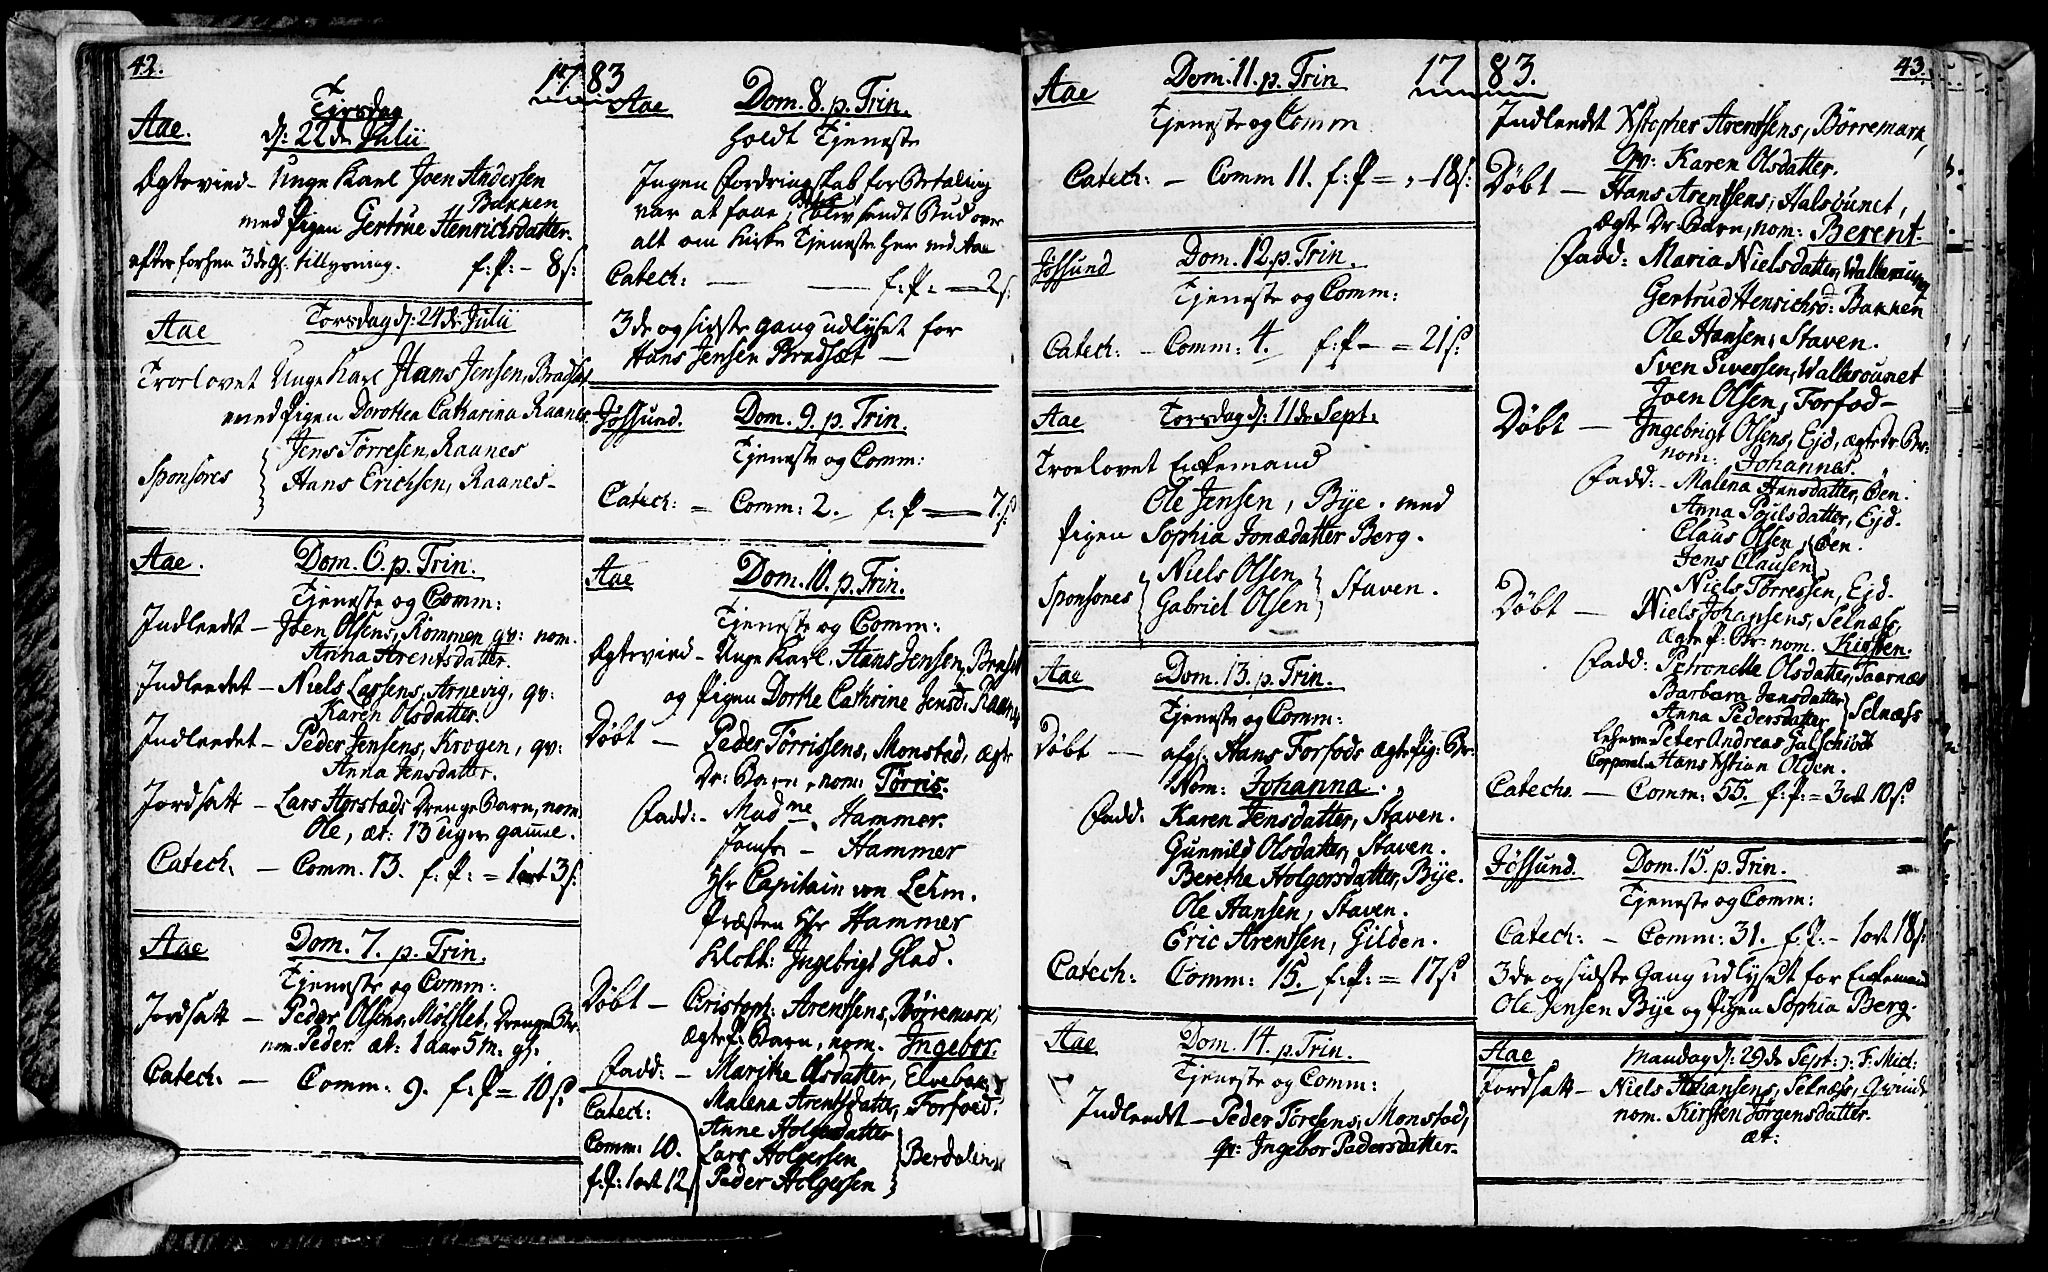 42.
1783
Tirsdag
Aae. d: 22de Julii
Ægtevied - Unge Karl Joen Andersen
Bakken
med Pigen Gertrue Henrichsdatter.
efter forhen 3de g: tillysning. f: P: - 8 s:
Aae Torsdag d: 24de Julii
Troelovet Unge Karl Hans Jensen, Bradsæt
med Pigen Dorothea Catharina Raanes
Jens Tørresen, Raanes
Sponsores
Hans Erichsen, Raanes -
Aae. Dom. 6. p. Trin.
Tjeneste og Comm:
Indleedt - Joen Olsens, Rømmen qv: nom.
Anna Arentsdatter.
Indleedet - Niels Larsens, Arnevig, qv:
Karen Olsdatter.
Indleedet - Peder Jensens, Krogen, qv:
Anna Jensdatter.
Jordsatt - Lars Harstads Drenge Barn, nom.
Ole, æt: 13 uger gamel.
Catech: - Comm. 13. f. P: = 1 ort 3 s:
Aae Dom. 7. p. Trin.
Tjeneste og Comm:
Jordsatt - Peder Olsens, Mølslet, Drenge Br.
nom. Peder. æt: 1 aar 5 m. gl.
Catech: - Comm: 9. f: P = 10 s:
Aae Dom. 8. p. Trin.
holdt Tjeneste
Ingen fordringskab for Betaling
var at faae, blev sendt Bud over
alt om Kirke Tjeneste her ved Aae
Catech: - f: P: - 2 s:
3de og sidste gang udlyset for
Hans Jensen Bradsæt -
Jøssund. Dom. 9. p. Trin.
Tjeneste og Comm:
Catech: = Comm: 2. f: P - 7. s:
Aae Dom. 10. p. Trin.
Tjeneste og Comm:
Ægtevied - Unge Karl. Hans Jensen, Bradsæt
og Pigen Dorthe Cathrine Jensd: Raanes
Døbt - Peder Tørrissens, Monstad, Ægte
Dr: Barn, nom: Tørris.
Fadd: - Mad me Hammer.
Jomfr - Hammer
Hr Capitain von Lehm.
Præsten Hr Hammer
Klokk: Ingebrigt Glad.
Døbt - Cristoph: Arentsens, Børremark,
ægte P: Barn, nom. Ingebor.
Fadd: - Marithe Olsdatter, Elvebak
Malena Arentsdatter, Forfoed.
Anne Holgersdatter
Lars Holgersen
Berdalen
Peder Holgersen
Catech:
Comm: 10.
f: P: 1 ort 12 s
43.
1783.
Aae Dom. 11. p. Trin
Tjeneste og Comm
Catech: - Comm 11. f: P = - 18 s:
Jøssund Dom. 12. p. Trin.
Tjeneste og Comm:
Catech: - Comm: 4. f: P - = 21 s:
Aae Torsdag d: 11de Sept:
Troelovet Enkemand
Ole Jensen, Bye. med
Pigen Sophia Jonædatter Berg.
Niels Olsen
Sponsores Staven.
Gabriel Olsen
Aae Dom. 13. p. Trin.
Tjeneste og Comm:
Døbt - afg: Hans Forfods ægte Pig: Br:
Nom: Johanna.
Fadd: Karen Jensdatter, Staven.
Gunnild Olsdatter, Staven.
Berethe Holgersdatter, Bye.
Ole Hansen, Staven.
Eric Arentsen, Gilden.
Catech: Comm: 15. f: P: = 17 s:
Aae Dom. 14. p. Trin.
Tjeneste og Comm:
Indleedt - Peder Tøresens, Monstad,
qv: Ingebor Pedersdatter.
Indleedet Xstopher Arentsens, Børremark,
Qv: Karen Olsdatter.
Døbt - Hans Arentsens, Halsøunet,
ægte Dr Barn, nom: Berent.
Fadd: Maria Nielsdatter, Walleraunet
Gertrud Henrichsd: Bakken
Ole Hansen, Staven.
Sven Siversen, Walleraunet
Joen Olsen, Forfod -
Døbt - Ingebrigt Olsens, Ejd, ægte dr Br:
nom: Johannes.
Fadd: - Malena Hansdatter, Øen.
Anna Poulsdatter, Ejd.
Claus Olsen
Øen.
Jens Clausen
Niels Tørressen, Ejd.
Døbt - Niels Johansens, Selnæs,
ægte P: Br: nom. Kirsten.
Fadd: Petronelle Olsdatter, Taarnæs
Barbara Jensdatter
Selnæss
Anna Pedersdatter
Peter Andreas Galschiødt
Copporal Hans Xstian Olden.
Catech. - Comm: 55. f: P: = 3 ort 10 s:
Jøssund. Dom. 15. p. Trin.
Tjeneste og Comm:
Catech: - Comm: 31. f. P: - 1 ort 18 s:
3de og sidste Gang udlyset for Enkemand
Ole Jensen Bye og Pigen Sophia Berg.
Aae Mandag d: 29de Sept: F. Mich:
Jordsatt - Niels Johansens, Selnæss, Qvinde
nom. Kirsten Jørgensdatter.
æt: